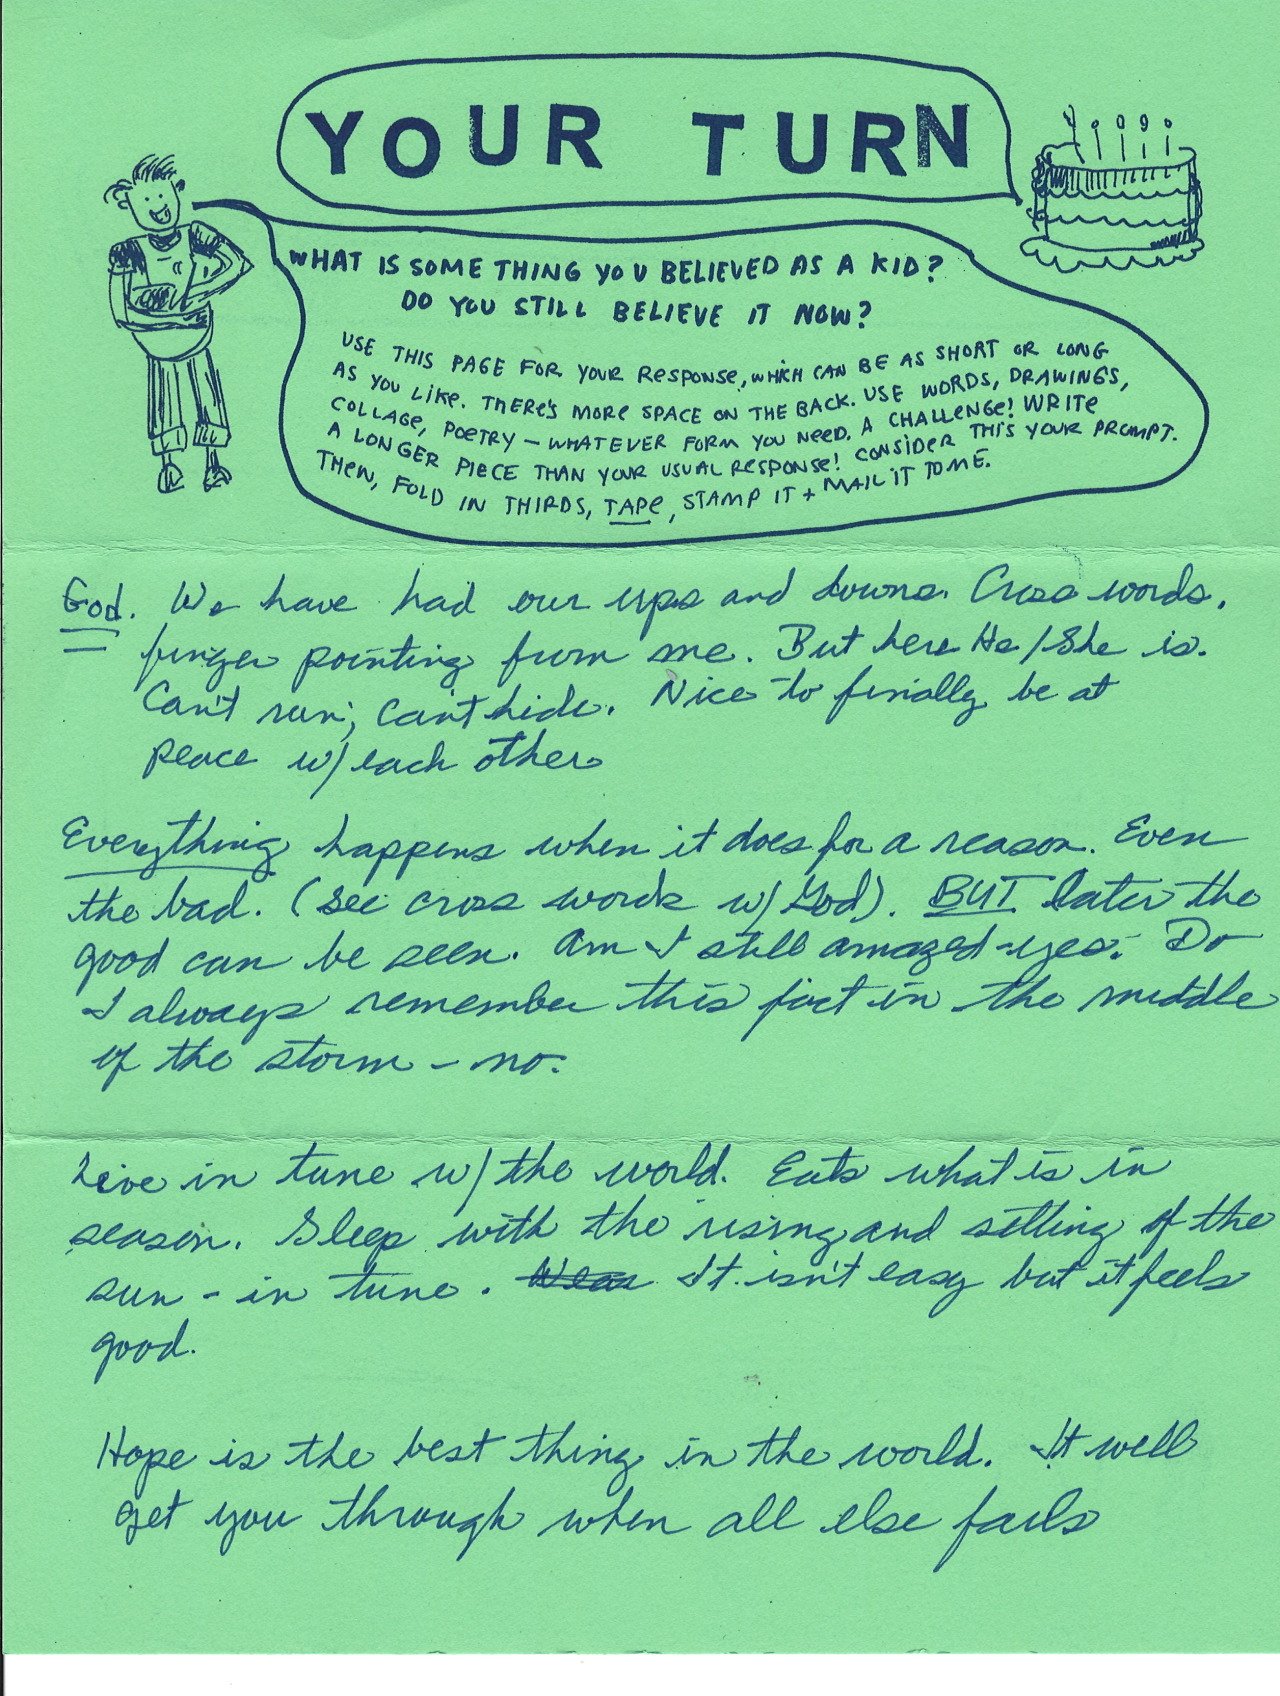 YOUR TURN
WHAT IS SOMETHING YOU BELIEVED AS A KID?
DO YOU STILL BELIEVE IT NOW?
USE THIS PAGE FOR YOUR RESPONSE, WHICH CAN BE AS SHORT OR LONG
AS YOU LIKE. THERE'S MORE SPACE ON THE BACK. USE WORDS, DRAWINGS,
COLLAGE, POETRY – WHATEVER FORM YOU NEED. A CHALLENGE! WRITE
A LONGER PIECE THAN YOUR USUAL RESPONSE! CONSIDER THIS YOUR PROMPT.
THEN, FOLD IN THIRDS, TAPE, STAMP IT + MAIL IT TO ME.
God. We have had our ups and downs. Cross words,
finger pointing from me. But here He/She is.
Can't run; can't hide. Nice to finally be at
peace w/ each other
Everything happens when it does for a reason. Even
the bad. (see cross words w/ God). BUT later the
good can be seen. Am I still amazed - yes. Do
I always remember this fact in the middle
of the storm - no.
Live in tune w/ the world. Eats what is in
season. Sleep with the rising and setting of the
sun - in tune. It isn't easy but it feels
good.
Hope is the best thing in the world. It well
get you through when all else fails